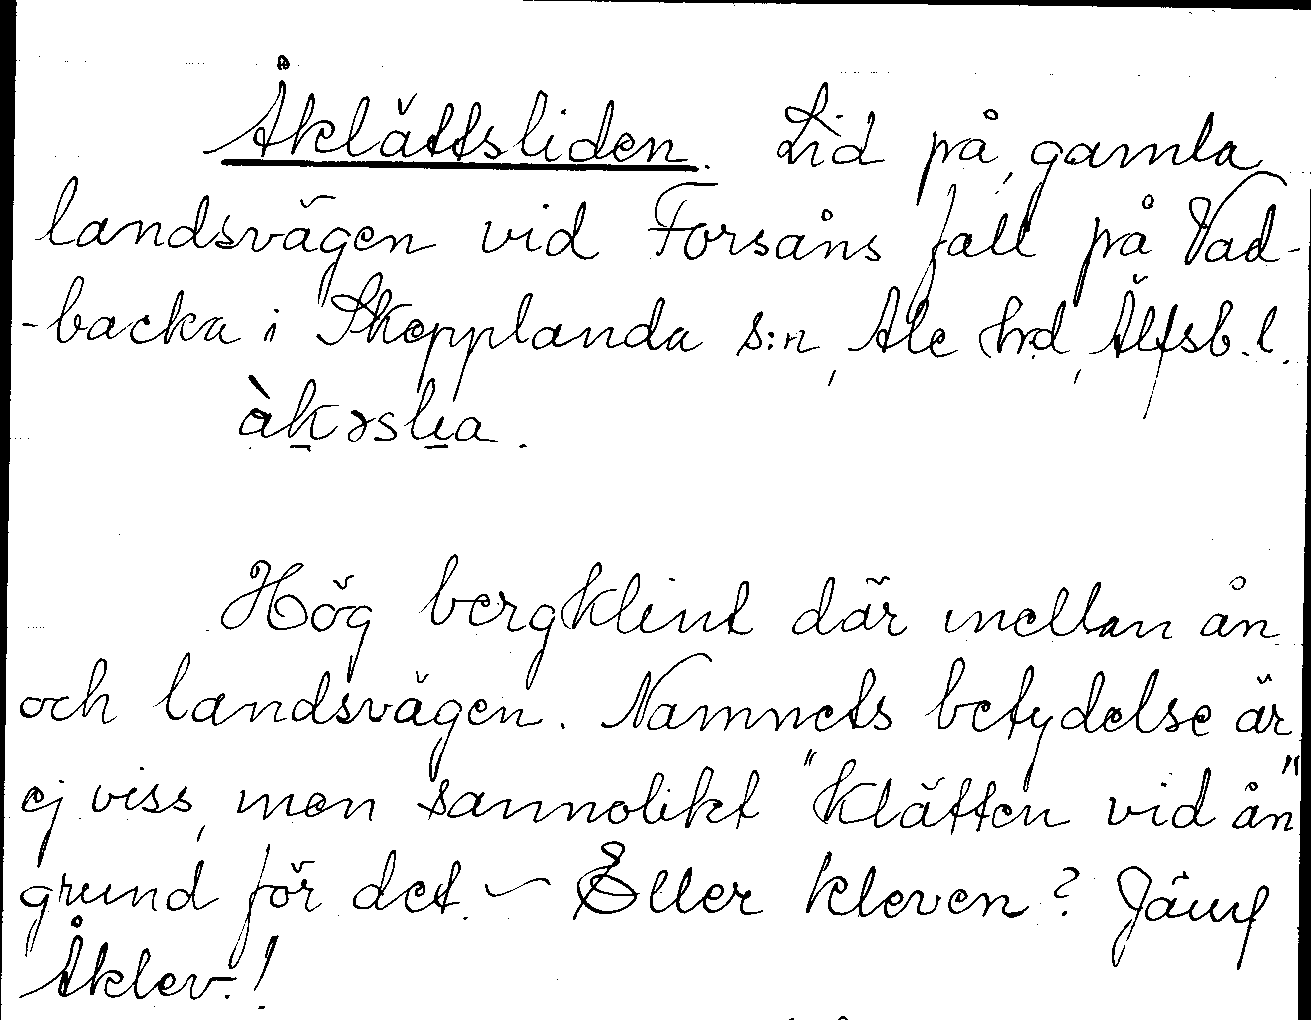 Åklättsliden. Lid på gamla
landsvägen vid Forsåns fall på Vad-
-backa i Skepplanda s:n, Ale hrd, Älfsb. l.
àk̲əsli̲a.
Hög bergklint där mellan ån
och landsvägen. Namnets betydelse är
ej viss, men sannolikt "klätten vid ån"
grund för det. – Eller kleven? Jämf
Åklev.!